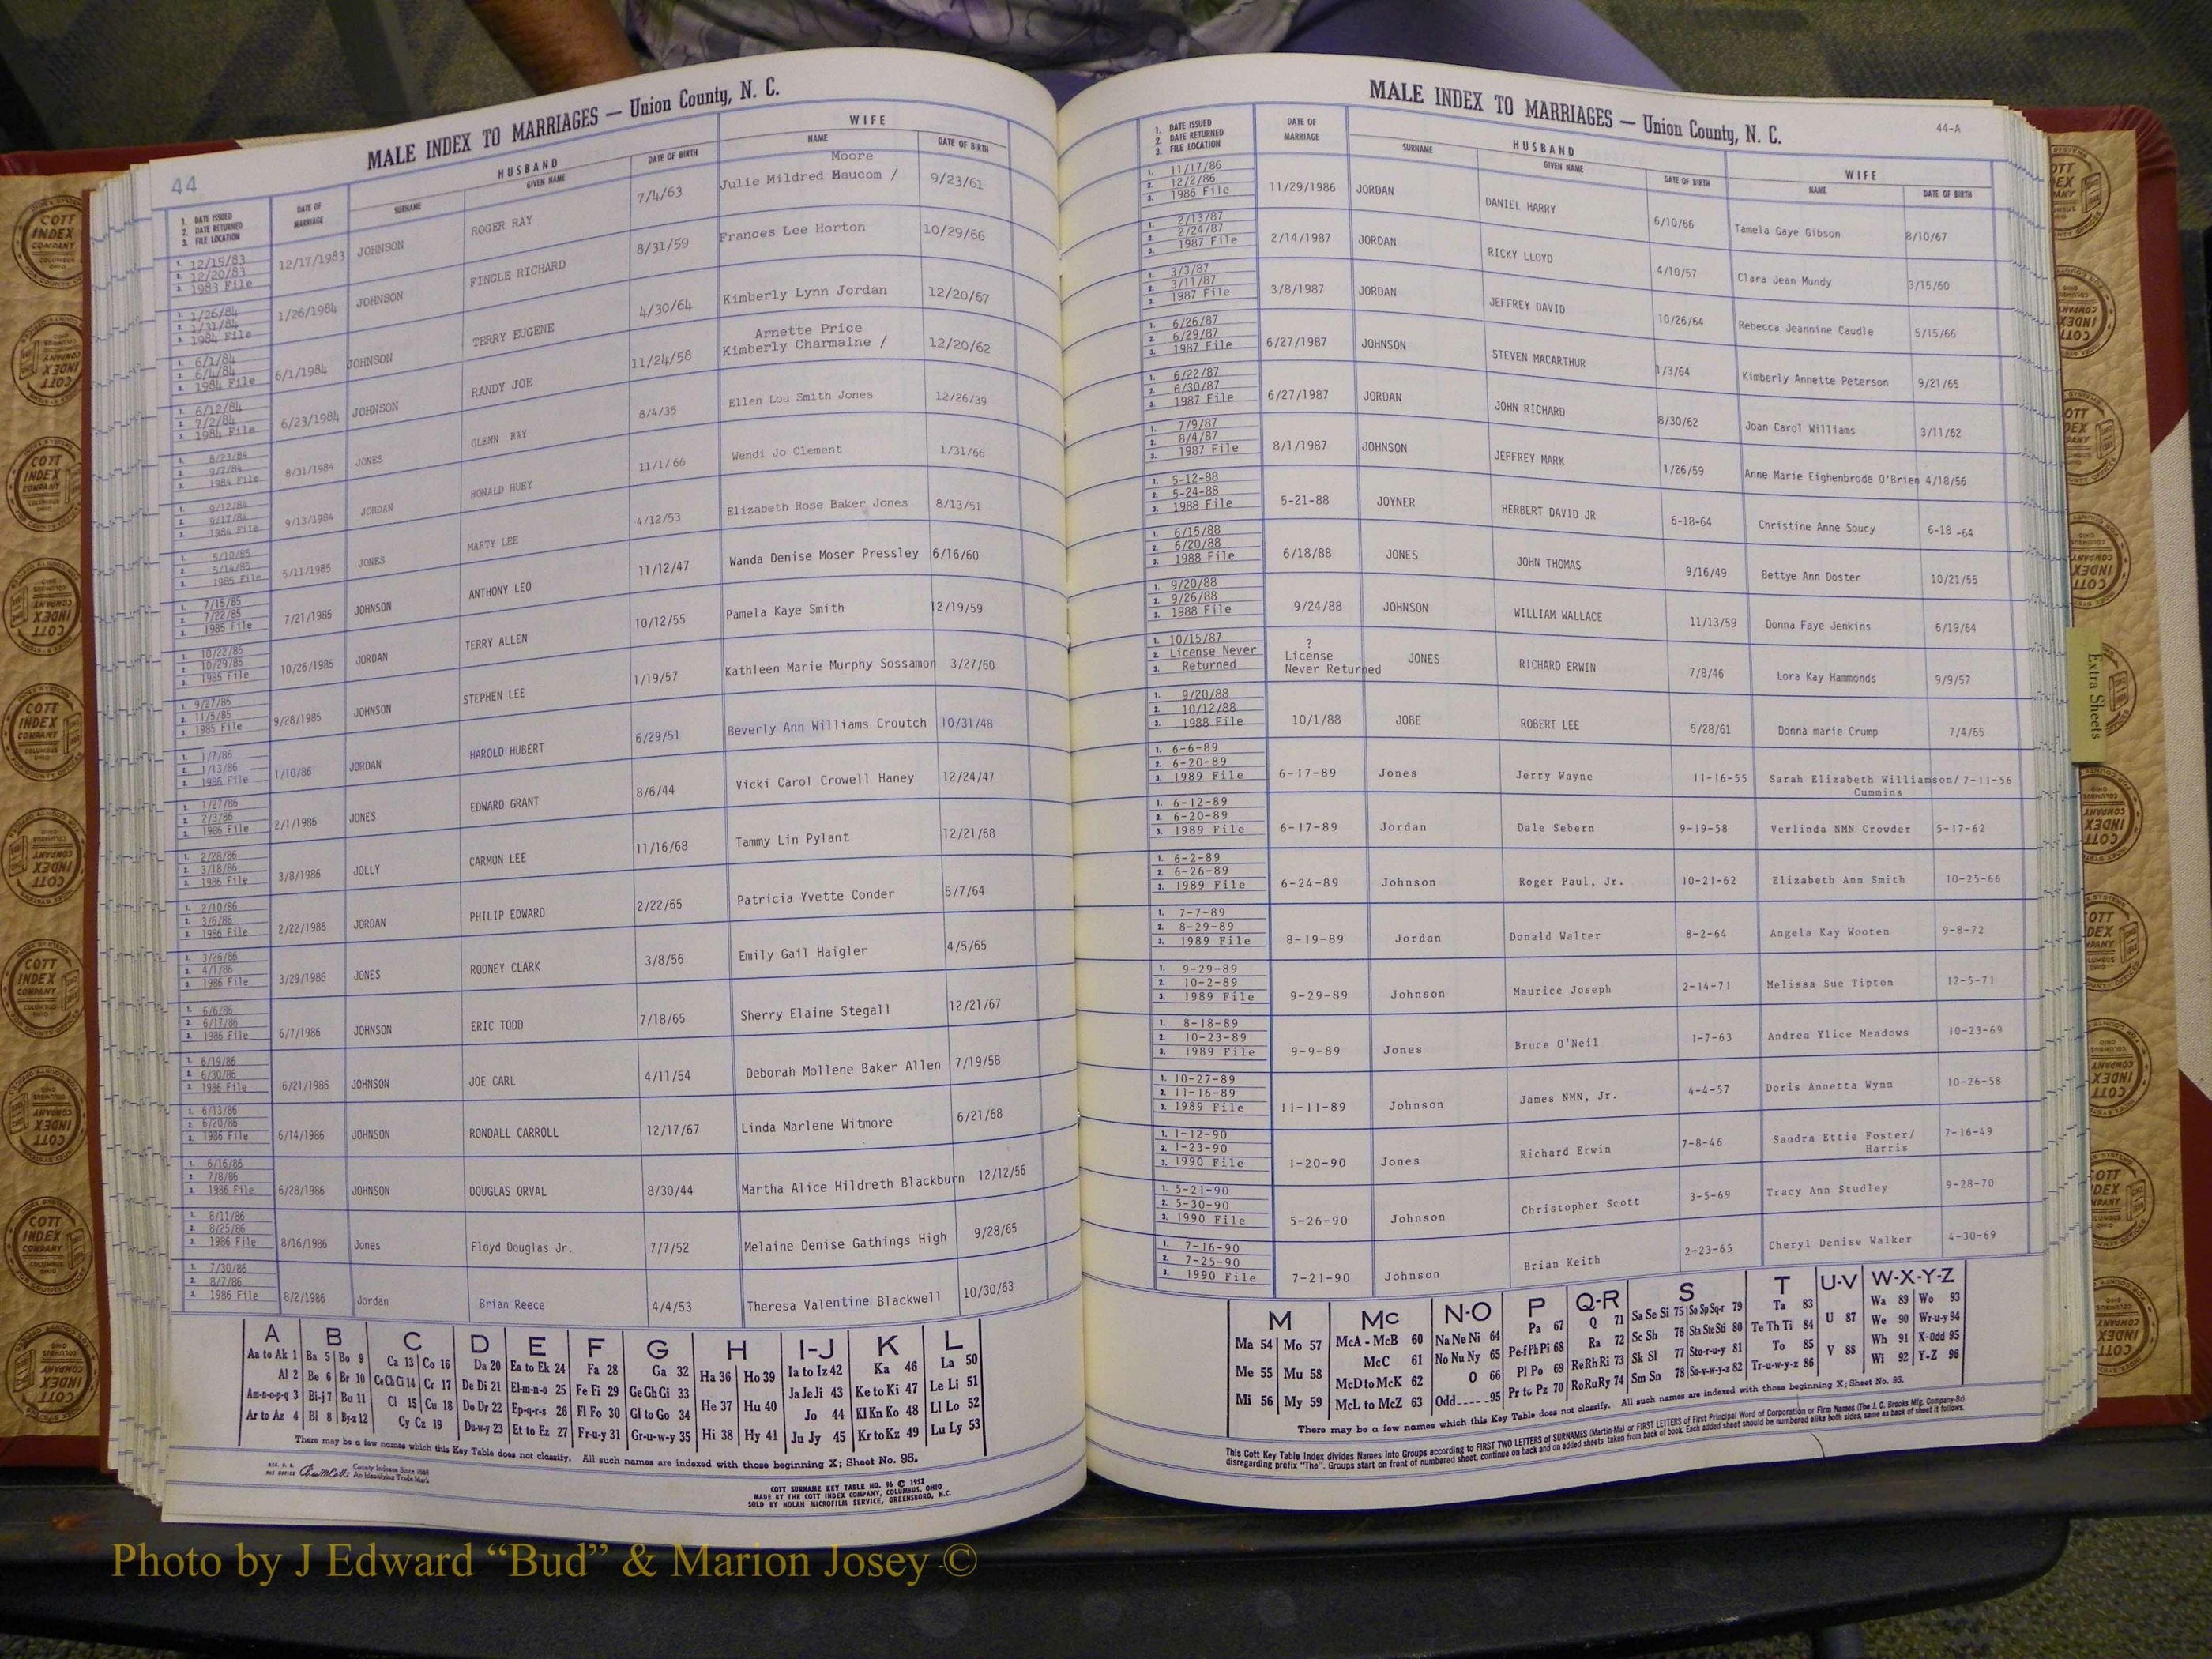 MALE INDEX TO MARRIAGES — Union County, N. C.
44
1. DATE ISSUED 2. DATE RETURNED 3. FILE LOCATION
DATE OF MARRIAGE
HUSBAND
SURNAME GIVEN NAME DATE OF BIRTH
WIFE
NAME DATE OF BIRTH
1. 12/15/83 2. 12/20/83 3. 1983 File 12/17/1983 JOHNSON ROGER RAY 7/4/63 Julie Mildred Baucom / Moore 9/23/61
1. 1/26/84 2. 1/31/84 3. 1984 File 1/26/1984 JOHNSON FINGLE RICHARD 8/31/59 Frances Lee Horton 10/29/66
1. 6/1/84 2. 6/4/84 3. 1984 File 6/1/1984 JOHNSON TERRY EUGENE 4/30/64 Kimberly Lynn Jordan 12/20/67
1. 6/12/84 2. 7/2/84 3. 1984 File 6/23/1984 JOHNSON RANDY JOE 11/24/58 Arnette Price Kimberly Charmaine / 12/20/62
1. 8/23/84 2. 9/7/84 3. 1984 File 8/31/1984 JONES GLENN RAY 8/4/35 Ellen Lou Smith Jones 12/26/39
1. 9/12/84 2. 9/17/84 3. 1984 File 9/13/1984 JORDAN RONALD HUEY 11/1/66 Wendi Jo Clement 1/31/66
1. 5/10/85 2. 5/14/85 3. 1985 File 5/11/1985 JONES MARTY LEE 4/12/53 Elizabeth Rose Baker Jones 8/13/51
1. 7/15/85 2. 7/22/85 3. 1985 File 7/21/1985 JOHNSON ANTHONY LEO 11/12/47 Wanda Denise Moser Pressley 6/16/60
1. 10/22/85 2. 10/29/85 3. 1985 File 10/26/1985 JORDAN TERRY ALLEN 10/12/55 Pamela Kaye Smith 12/19/59
1. 9/27/85 2. 11/5/85 3. 1985 File 9/28/1985 JOHNSON STEPHEN LEE 1/19/57 Kathleen Marie Murphy Sossamon 3/27/60
1. 1/7/86 2. 1/13/86 3. 1986 File 1/10/86 JORDAN HAROLD HUBERT 6/29/51 Beverly Ann Williams Croutch 10/31/48
1. 1/27/86 2. 2/3/86 3. 1986 File 2/1/1986 JONES EDWARD GRANT 8/6/44 Vicki Carol Crowell Haney 12/24/47
1. 2/28/86 2. 3/18/86 3. 1986 File 3/8/1986 JOLLY CARMON LEE 11/16/68 Tammy Lin Pylant 12/21/68
1. 2/10/86 2. 3/6/86 3. 1986 File 2/22/1986 JORDAN PHILIP EDWARD 2/22/65 Patricia Yvette Conder 5/7/64
1. 3/26/86 2. 4/1/86 3. 1986 File 3/29/1986 JONES RODNEY CLARK 3/8/56 Emily Gail Haigler 4/5/65
1. 6/6/86 2. 6/17/86 3. 1986 File 6/7/1986 JOHNSON ERIC TODD 7/18/65 Sherry Elaine Stegall 12/21/67
1. 6/19/86 2. 6/30/86 3. 1986 File 6/21/1986 JOHNSON JOE CARL 4/11/54 Deborah Mollene Baker Allen 7/19/58
1. 6/13/86 2. 6/20/86 3. 1986 File 6/14/1986 JOHNSON RONDALL CARROLL 12/17/67 Linda Marlene Witmore 6/21/68
1. 6/16/86 2. 7/8/86 3. 1986 File 6/28/1986 JOHNSON DOUGLAS ORVAL 8/30/44 Martha Alice Hildreth Blackburn 12/12/56
1. 8/11/86 2. 8/25/86 3. 1986 File 8/16/1986 Jones Floyd Douglas Jr. 7/7/52 Melaine Denise Gathings High 9/28/65
1. 7/30/86 2. 8/7/86 3. 1986 File 8/2/1986 Jordan Brian Reece 4/4/53 Theresa Valentine Blackwell 10/30/63
A B C D E F G H I-J K L
Aa to Ak 1 Ba 5 Bo 9 Ca 13 Co 16 Da 20 Ea to Ek 24 Fa 28 Ga 32 Ha 36 Ho 39 Ia to Iz 42 Ka 46 La 50
Al 2 Be 6 Br 10 Ce Ch Ci 14 Cr 17 De Di 21 El-m-n-o 25 Fe Fi 29 Ge Gh Gi 33 He 37 Hu 40 Ja Je Ji 43 Ke to Ki 47 Le Li 51
Am-n-o-p-q 3 Bi-j 7 Bu 11 Cl 15 Cu 18 Do Dr 22 Ep-q-r-s 26 Fl Fo 30 Gl to Go 34 Hi 38 Hy 41 Jo 44 Kl Kn Ko 48 Ll Lo 52
Ar to Az 4 Bl 8 By-z 12 Cy Cz 19 Du-w-y 23 Et to Ez 27 Fr-u-y 31 Gr-u-w-y 35 Ju Jy 45 Kr to Kz 49 Lu Ly 53
There may be a few names which this Key Table does not classify. All such names are indexed with those beginning X; Sheet No. 95.
County Indexes Since 1888
An Identifying Trade Mark
COTT SURNAME KEY TABLE NO. 96 © 1952
MADE BY THE COTT INDEX COMPANY, COLUMBUS, OHIO
SOLD BY NOLAN MICROFILM SERVICE, GREENSBORO, N.C.
MALE INDEX TO MARRIAGES — Union County, N. C.
44-A
1. DATE ISSUED 2. DATE RETURNED 3. FILE LOCATION
DATE OF MARRIAGE
HUSBAND
SURNAME GIVEN NAME DATE OF BIRTH
WIFE
NAME DATE OF BIRTH
1. 11/17/86 2. 12/2/86 3. 1986 File 11/29/1986 JORDAN DANIEL HARRY 6/10/66 Tamela Gaye Gibson 8/10/67
1. 2/13/87 2. 2/24/87 3. 1987 File 2/14/1987 JORDAN RICKY LLOYD 4/10/57 Clara Jean Mundy 3/15/60
1. 3/3/87 2. 3/11/87 3. 1987 File 3/8/1987 JORDAN JEFFREY DAVID 10/26/64 Rebecca Jeannine Caudle 5/15/66
1. 6/26/87 2. 6/29/87 3. 1987 File 6/27/1987 JOHNSON STEVEN MACARTHUR 1/3/64 Kimberly Annette Peterson 9/21/65
1. 6/22/87 2. 6/30/87 3. 1987 File 6/27/1987 JORDAN JOHN RICHARD 8/30/62 Joan Carol Williams 3/11/62
1. 7/9/87 2. 8/4/87 3. 1987 File 8/1/1987 JOHNSON JEFFREY MARK 1/26/59 Anne Marie Eighenbrode O'Brien 4/18/56
1. 5-12-88 2. 5-24-88 3. 1988 File 5-21-88 JOYNER HERBERT DAVID JR 6-18-64 Christine Anne Soucy 6-18-64
1. 6/15/88 2. 6/20/88 3. 1988 File 6/18/88 JONES JOHN THOMAS 9/16/49 Bettye Ann Doster 10/21/55
1. 9/20/88 2. 9/26/88 3. 1988 File 9/24/88 JOHNSON WILLIAM WALLACE 11/13/59 Donna Faye Jenkins 6/19/64
1. 10/15/87 2. License Never 3. Returned ? License Never Returned JONES RICHARD ERWIN 7/8/46 Lora Kay Hammonds 9/9/57
1. 9/20/88 2. 10/12/88 3. 1988 File 10/1/88 JOBE ROBERT LEE 5/28/61 Donna marie Crump 7/4/65
1. 6-6-89 2. 6-20-89 3. 1989 File 6-17-89 Jones Jerry Wayne 11-16-55 Sarah Elizabeth Williamson/ Cummins 7-11-56
1. 6-12-89 2. 6-20-89 3. 1989 File 6-17-89 Jordan Dale Sebern 9-19-58 Verlinda NMN Crowder 5-17-62
1. 6-2-89 2. 6-26-89 3. 1989 File 6-24-89 Johnson Roger Paul, Jr. 10-21-62 Elizabeth Ann Smith 10-25-66
1. 7-7-89 2. 8-29-89 3. 1989 File 8-19-89 Jordan Donald Walter 8-2-64 Angela Kay Wooten 9-8-72
1. 9-29-89 2. 10-2-89 3. 1989 File 9-29-89 Johnson Maurice Joseph 2-14-71 Melissa Sue Tipton 12-5-71
1. 8-18-89 2. 10-23-89 3. 1989 File 9-9-89 Jones Bruce O'Neil 1-7-63 Andrea Ylice Meadows 10-23-69
1. 10-27-89 2. 11-16-89 3. 1989 File 11-11-89 Johnson James NMN, Jr. 4-4-57 Doris Annetta Wynn 10-26-58
1. 1-12-90 2. 1-23-90 3. 1990 File 1-20-90 Jones Richard Erwin 7-8-46 Sandra Ettie Foster/ Harris 7-16-49
1. 5-21-90 2. 5-30-90 3. 1990 File 5-26-90 Johnson Christopher Scott 3-5-69 Tracy Ann Studley 9-28-70
1. 7-16-90 2. 7-25-90 3. 1990 File 7-21-90 Johnson Brian Keith 2-23-65 Cheryl Denise Walker 4-30-69
M Mc N-O P Q-R S T U-V W-X-Y-Z
Ma 54 Mo 57 McA - McB 60 Na Ne Ni 64 Pa 67 Q 71 Sa Se Si 75 So Sp Sq-r 79 Ta 83 U 87 Wa 89 Wo 93
Me 55 Mu 58 McC 61 No Nu Ny 65 Pe-f Ph Pi 68 Ra 72 Sc Sh 76 Sta Ste Sti 80 Te Th Ti 84 V 88 We 90 Wr-u-y 94
Mi 56 My 59 McD to McK 62 O 66 Pl Po 69 Re Rh Ri 73 Sk Sl 77 Sto-r-u-y 81 To 85 Wh 91 X-Odd 95
McL to McZ 63 Odd 95 Pr to Pz 70 Ro Ru Ry 74 Sm Sn 78 Su-v-w-y-z 82 Tr-u-w-y-z 86 Wi 92 Y-Z 96
There may be a few names which this Key Table does not classify. All such names are indexed with those beginning X; Sheet No. 95.
This Cott Key Table Index divides Names into Groups according to FIRST TWO LETTERS of SURNAMES (Martin-Ma) or FIRST LETTERS of First Principal Word of Corporation or Firm Names (The J. C. Brooks Mfg. Company-Br)
disregarding prefix "The". Groups start on front of numbered sheet, continue on back and on added sheets taken from back of book. Each added sheet should be numbered alike both sides, same as back of sheet it follows.
Extra Sheets
COTT INDEX COMPANY COLUMBUS OHIO
Photo by J Edward “Bud” & Marion Josey ©